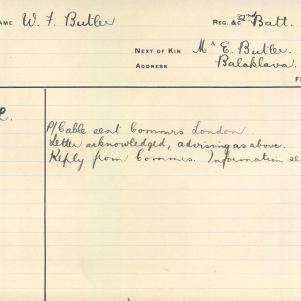 NAME W. F. Butler
REG. &C 2nd Batt.
NEXT OF KIN Mr E. Butler.
ADDRESS Balaklava.
P/Cable sent Commrs London
Letter acknowledged, advising as above.
Reply from Commrs. Information se